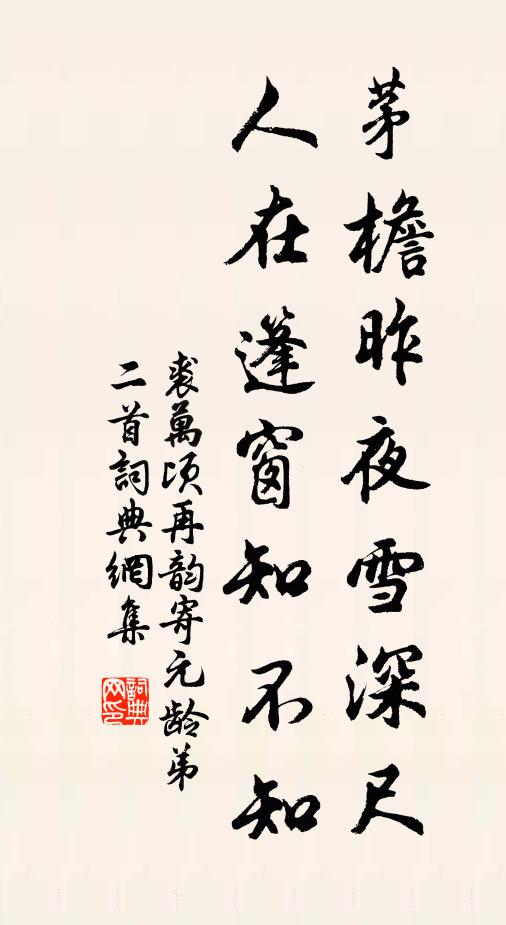 茅檐昨夜雪深尺
人在篷窗知不知
裘萬頃再韵寄元龄弟
二首詞典網集
詞典網印